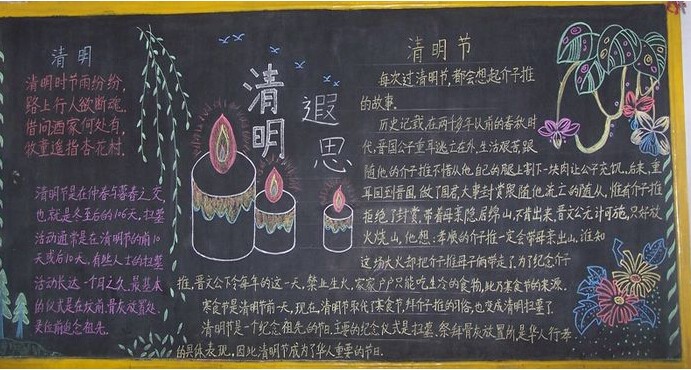 清明
清明时节雨纷纷,
路上行人欲断魂。
借问酒家何处有,
牧童遥指杏花村。
清明节是在仲春与暮春之交,
也就是冬至后的106天,扫墓
活动通常是在清明节的前10
天或后10天,有些人士的扫墓
活动长达一个月之久,最基本
的仪式是在坟前、骨灰放置处
灵位前追念祖先。
清明
遐思
清明节
每次过清明节,都会想起介子推
的故事。
历史记载,在两千多年以前的春秋时
代,晋国公子重耳逃亡在外,生活艰苦,跟
随他的介子推不惜从他自己的腿上割下一块肉让公子充饥。后来,重
耳回到晋国,做了国君,大事封赏跟随他流亡的随从,惟有介子推
拒绝了封赏,带着母亲隐居绵山,不肯出来,晋文公无计可施,只好放
火烧山,他想,孝顺的介子推一定会带母亲出山。谁知
这场大火却把介子推母子俩带走了,为了纪念介子
推,晋文公下令每年的这一天,禁止生火,家家户户只能吃生冷的食物,此乃寒食节的来源。
寒食节是清明节前一天,现在,清明节取代了寒食节,拜介子推的习俗,也变成清明扫墓了。
清明节是一个纪念祖先的节日,主要的纪念仪式是扫墓、祭拜骨灰放置所,是华人行孝
的具体表现,因此清明节成为了华人重要的节日。